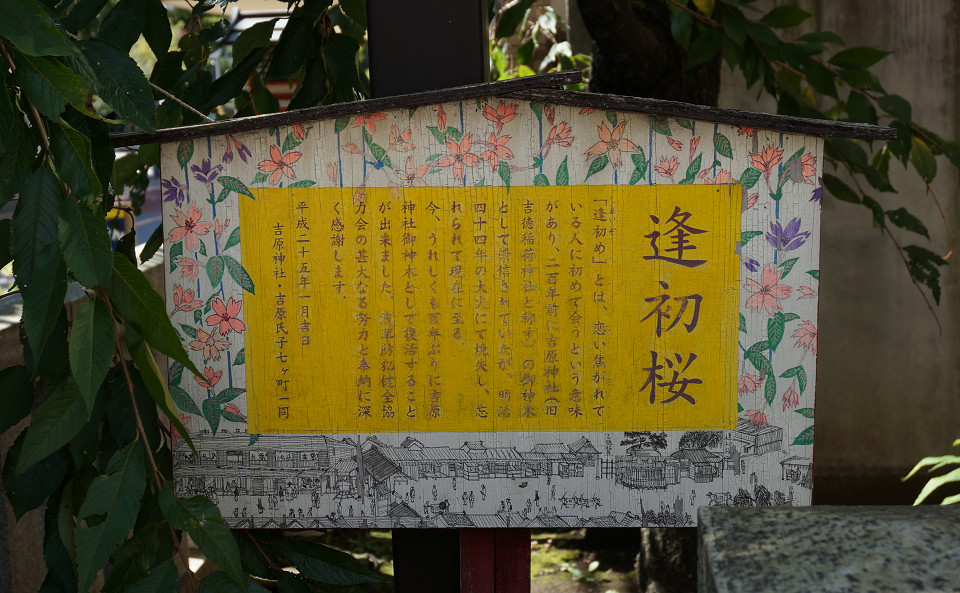 逢初桜
「逢初め」とは、恋い焦がれて
いる人に初めて会うという意味
があり、二百年前に吉原神社(旧
吉徳稲荷神社と称す)の御神木
として崇信されていたが、明治
四十四年の大火にて焼失し、忘
れられて現在に至る。
今、うれしくも百年ぶりに吉原
神社御神木として復活すること
が出来ました。浅草防犯健全協
力会の甚大なる努力と奉納に深
く感謝します。
平成二十五年一月吉日
吉原神社・吉原氏子七ヶ町一同